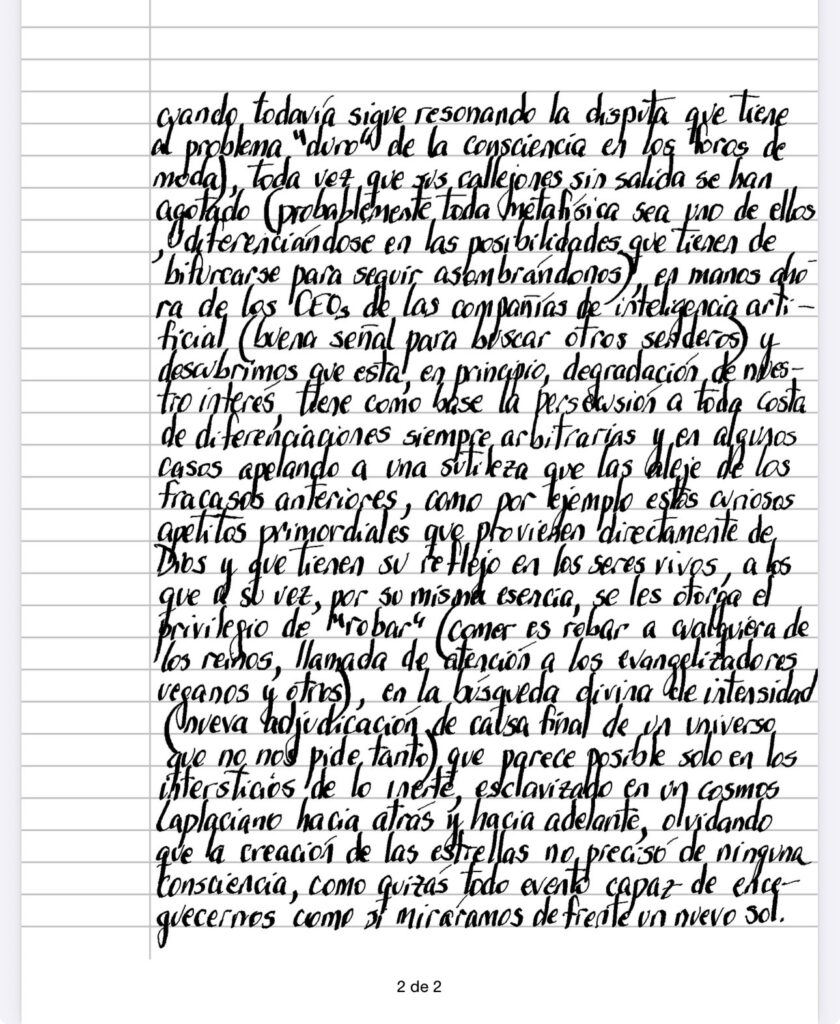 cuando todavía sigue resonando la disputa que tiene
al problema "duro" de la consciencia en los foros de
moda), toda vez que sus callejones sin salida se han
agotado (probablemente toda metafísica sea uno de ellos
, diferenciándose en las posibilidades que tienen de
bifurcarse para seguir asombrándonos), en manos aho-
ra de los CEOs de las compañías de inteligencia arti-
ficial (buena señal para buscar otros senderos) y
descubrimos que esta, en principio, degradación de nues-
tro interés, tiene como base la persecusión a toda costa
de diferenciaciones siempre arbitrarias y en algunos
casos apelando a una sutileza que las aleje de los
fracasos anteriores, como por ejemplo estos curiosos
apetitos primordiales que provienen directamente de
Dios y que tienen su reflejo en los seres vivos, a los
que a su vez, por su misma esencia, se les otorga el
privilegio de "robar" (comer es robar a cualquiera de
los reinos, llamada de atención a los evangelizadores
veganos y otros), en la búsqueda divina de intensidad
(nueva adjudicación de causa final de un universo
que no nos pide tanto) que parece posible solo en los
intersticios de lo inerte, esclavizado en un cosmos
Laplaciano hacia atrás y hacia adelante, olvidando
que la creación de las estrellas no precisó de ninguna
consciencia, como quizás todo evento capaz de ence-
guecernos como si miráramos de frente un nuevo sol.
2 de 2